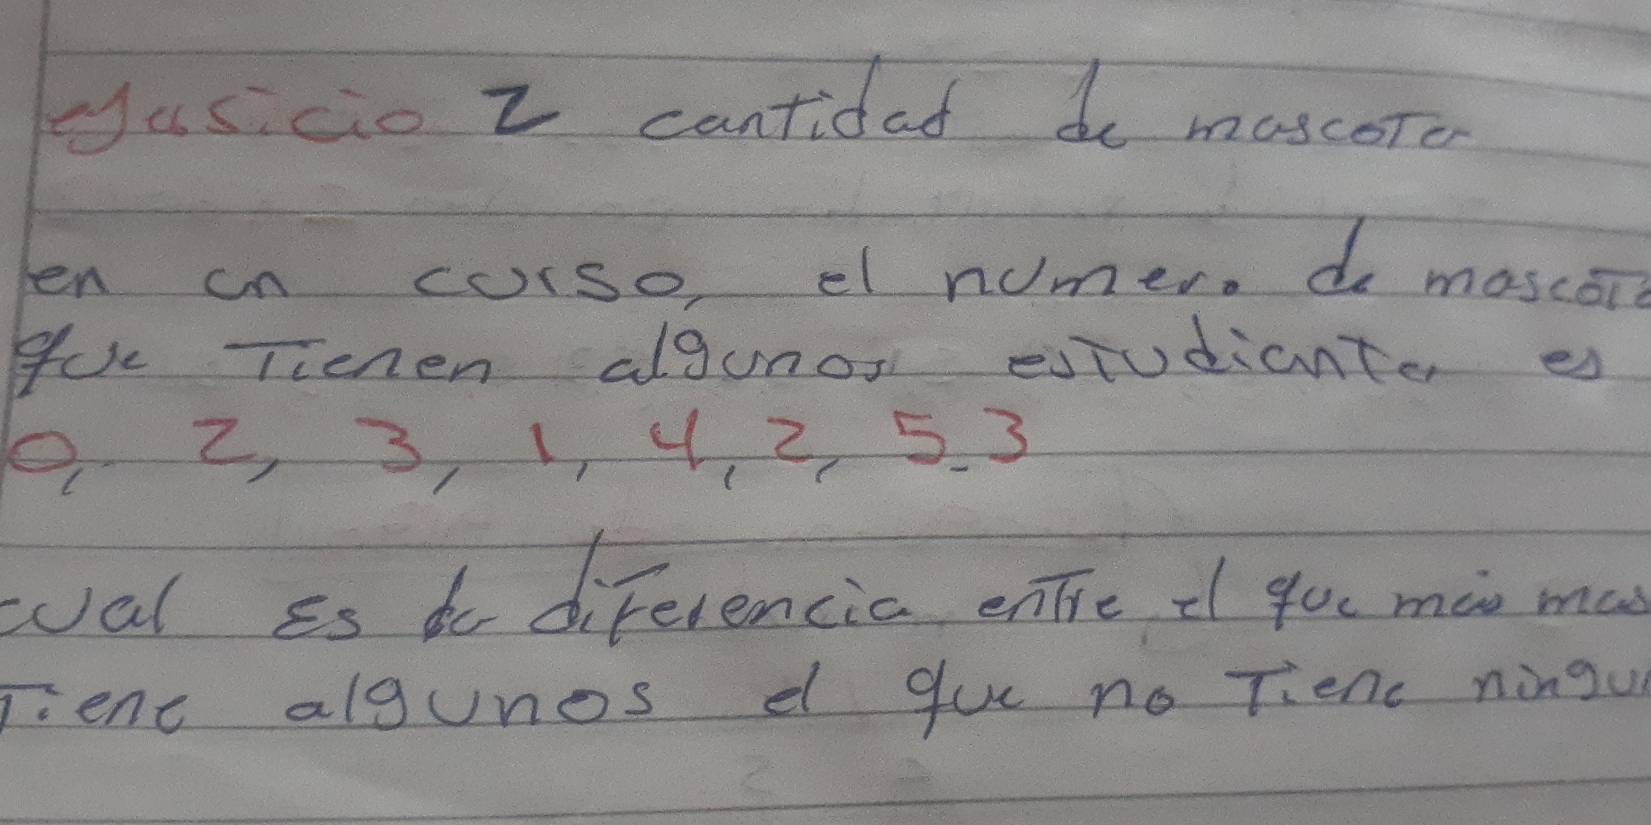 ejusicio 2 cantidad de mascota
en un curso, el numero de mascota
que Tienen algunos estudiantes es
0, 2, 3, 1, 4, 2, 5. 3
cual Es la diferencia entre el que más mas
Tiene algunos el que no Tiene ningun